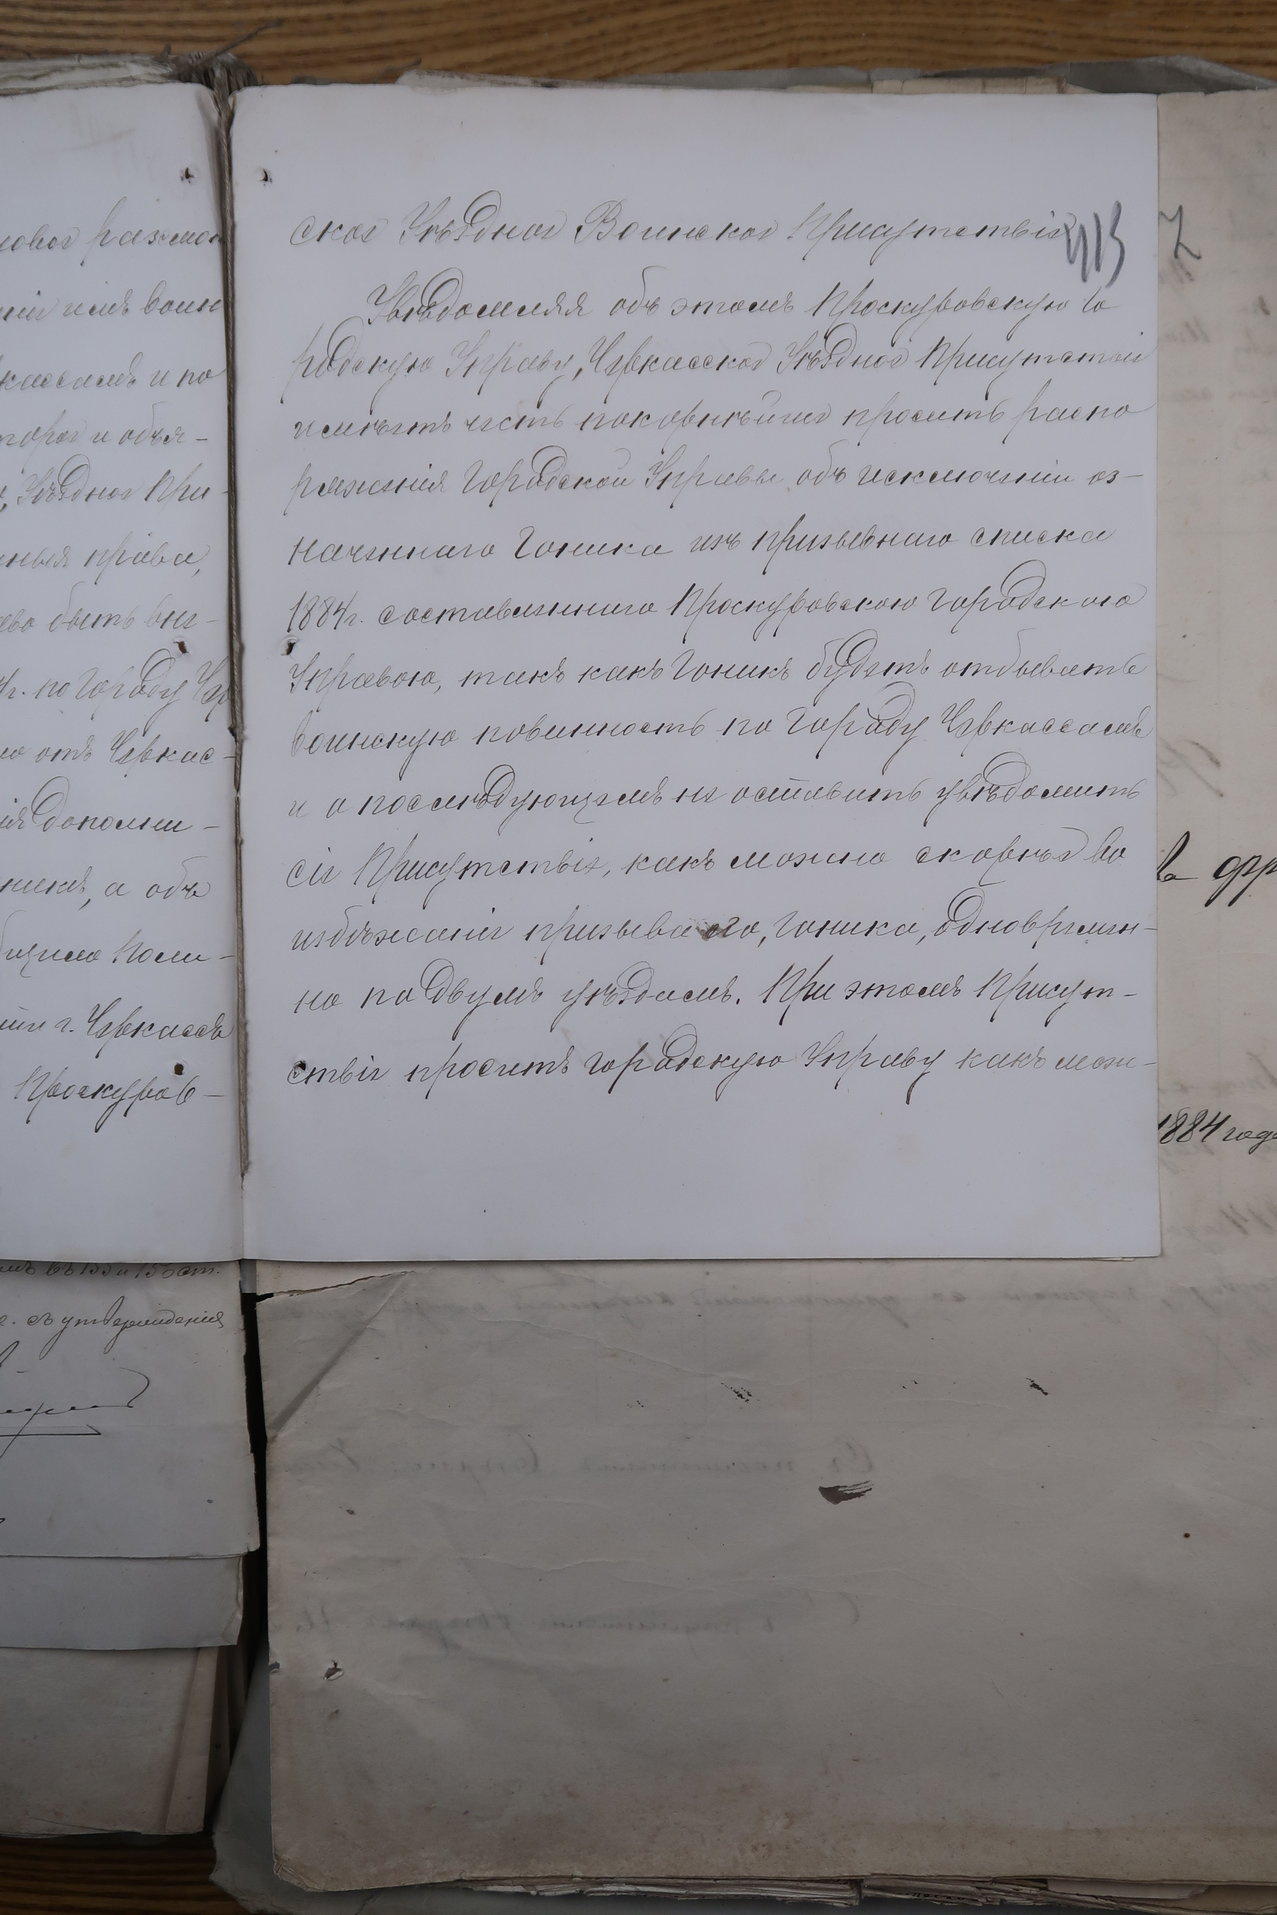 ское Уѣздное Воинское Присутствіе
Увѣдомляя объ этомъ Проскуровскую Го
родскую Управу, Черкасское Уѣздное Присутствіе
имѣетъ честь покорнѣйше просить распо
ряженія Городской Управы объ исключеніи оз-
наченнаго Гоника изъ призывнаго списка
1884 г. составленнаго Проскуровскою Городского
Управою, такъ какъ Гоникъ будетъ отбывать
воинскую повинность по городу Черкассамъ
и о послѣдующемъ не оставить увѣдомить
сіе Присутствіе, какъ можно скорѣе во
избѣжаніе призыва его, Гоника, одновремен-
но по двумъ уѣздамъ. При этомъ Присут-
ствіе проситъ Городскую Управу какъ мож-
кассамъ и по
и объя-
Уѣздное При-
права,
быть вне-
г. по городу Чер
отъ Черкас-
дополни-
а объ
Поли-
г. Черкассъ
Проскуров-
съ утвержденія
1884 года